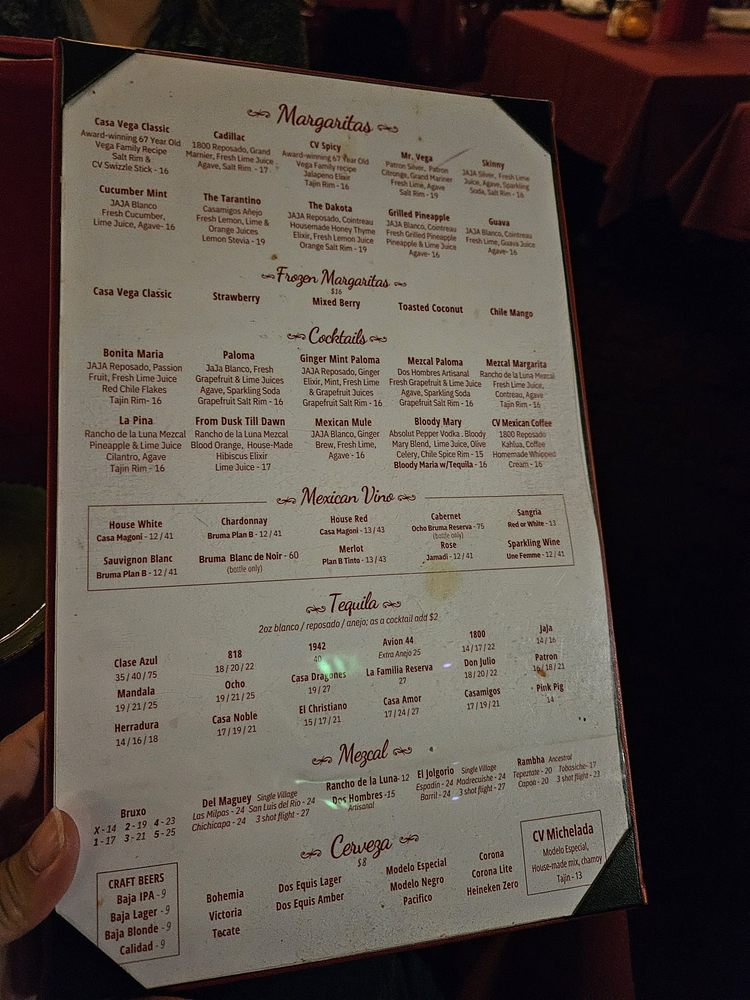 Margaritas
Casa Vega Classic
Award-winning 67 Year Old
Vega Family Recipe
Salt Rim &
CV Swizzle Stick - 16
Cadillac
1800 Reposado, Grand
Marnier, Fresh Lime Juice
Agave, Salt Rim - 17
CV Spicy
Award-winning 67 Year Old
Vega Family recipe
Jalapeno Elixir
Tajin Rim - 16
Mr. Vega
Patron Silver, Patron
Citronge, Grand Mariner
Fresh Lime, Agave
Salt Rim - 19
Skinny
JAJA Silver, Fresh Lime
Juice, Agave, Sparkling
Soda, Salt Rim - 16
Cucumber Mint
JAJA Blanco
Fresh Cucumber,
Lime Juice, Agave- 16
The Tarantino
Casamigos Añejo
Fresh Lemon, Lime &
Orange Juices
Lemon Stevia - 19
The Dakota
JAJA Reposado, Cointreau
Housemade Honey Thyme
Elixir, Fresh Lemon Juice
Orange Salt Rim - 16
Grilled Pineapple
JAJA Blanco, Cointreau
Fresh Grilled Pineapple
Pineapple & Lime Juice
Agave- 16
Guava
JAJA Blanco, Cointreau
Fresh Lime, Guava Juice
Agave- 16
Frozen Margaritas
$16
Casa Vega Classic
Strawberry
Mixed Berry
Toasted Coconut
Chile Mango
Cocktails
Bonita Maria
JAJA Reposado, Passion
Fruit, Fresh Lime Juice
Red Chile Flakes
Tajin Rim- 16
Paloma
JaJa Blanco, Fresh
Grapefruit & Lime Juices
Agave, Sparkling Soda
Grapefruit Salt Rim - 16
Ginger Mint Paloma
JAJA Reposado, Ginger
Elixir, Mint, Fresh Lime
& Grapefruit Juices
Grapefruit Salt Rim - 16
Mezcal Paloma
Dos Hombres Artisanal
Fresh Grapefruit & Lime Juice
Agave, Sparkling Soda
Grapefruit Salt Rim - 16
Mezcal Margarita
Rancho de la Luna Mezcal
Fresh Lime Juice,
Contreau, Agave
Tajin Rim - 16
La Pina
Rancho de la Luna Mezcal
Pineapple & Lime Juice
Cilantro, Agave
Tajin Rim - 16
From Dusk Till Dawn
Rancho de la Luna Mezcal
Blood Orange, House-Made
Hibiscus Elixir
Lime Juice - 17
Mexican Mule
JAJA Blanco, Ginger
Brew, Fresh Lime,
Agave - 16
Bloody Mary
Absolut Pepper Vodka , Bloody
Mary Blend, Lime Juice, Olive
Celery, Chile Spice Rim - 15
Bloody Maria w/Tequila - 16
CV Mexican Coffee
1800 Reposado
Kahlua, Coffee
Homemade Whipped
Cream - 16
Mexican Vino
House White
Casa Magoni - 12 / 41
Chardonnay
Bruma Plan B - 12 / 41
House Red
Casa Magoni - 13 / 43
Cabernet
Ocho Bruma Reserva - 75
(bottle only)
Sangria
Red or White - 13
Sauvignon Blanc
Bruma Plan B - 12 / 41
Bruma Blanc de Noir - 60
(bottle only)
Merlot
Plan B Tinto - 13 / 43
Rose
Jamadi - 12 / 41
Sparkling Wine
Une Femme - 12 / 41
Tequila
2oz blanco / reposado / anejo; as a cocktail add $2
Clase Azul
35 / 40 / 75
818
18 / 20 / 22
1942
40
Avion 44
Extra Anejo 25
1800
14 / 17 / 22
Jaja
14 / 16
Mandala
19 / 21 / 25
Ocho
19 / 21 / 25
Casa Dragones
19 / 27
La Familia Reserva
27
Don Julio
18 / 20 / 22
Patron
16 / 18 / 21
Herradura
14 / 16 / 18
Casa Noble
17 / 19 / 21
El Christiano
15 / 17 / 21
Casa Amor
17 / 24 / 27
Casamigos
17 / 19 / 21
Pink Pig
14
Mezcal
Bruxo
X - 14 2 - 19 4 - 23
1 - 17 3 - 21 5 - 25
Del Maguey Single Village
Las Milpas - 24 San Luis del Rio - 24
Chichicapa - 24 3 shot flight - 27
Rancho de la Luna- 12
Dos Hombres -15
Artisanal
El Jolgorio Single Village
Espadin - 24 Madrecuishe - 24
Barril - 24 3 shot flight - 27
Rambha Ancestral
Tepeztate - 20 Tobasiche- 17
Capon - 20 3 shot flight - 23
Cerveza
$8
CRAFT BEERS
Baja IPA - 9
Baja Lager - 9
Baja Blonde - 9
Calidad - 9
Bohemia
Victoria
Tecate
Dos Equis Lager
Dos Equis Amber
Modelo Especial
Modelo Negro
Pacifico
Corona
Corona Lite
Heineken Zero
CV Michelada
Modelo Especial,
House-made mix, chamoy
Tajin - 13